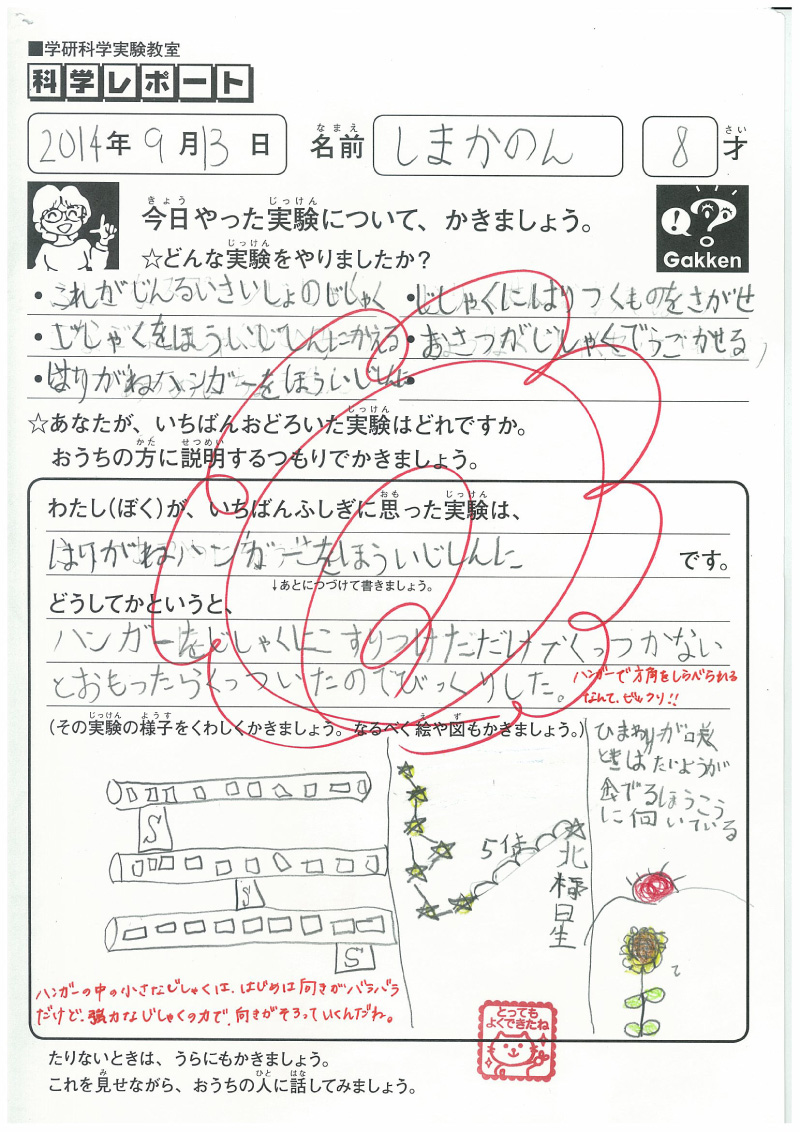 ■学研科学実験教室
科学レポート
2014年9月13日 名前 しまかのん 8才
なまえ さい
今日やった実験について、かきましょう。
きょう じっけん
☆どんな実験をやりましたか？
じっけん
Gakken
・これがじんるいさいしょのじしゃく ・じしゃくにばりつくものをさがせ
・じしゃくをほういじしんにかえる ・おさつがじしゃくでうごかせる
・はりがねハンガーをほういじしんに ・
☆あなたが、いちばんおどろいた実験はどれですか。
じっけん
おうちの方に説明するつもりでかきましょう。
かた せつめい
わたし(ぼく)が、いちばんふしぎに思った実験は、
おも じっけん
はりがねハンガーをほういじしんに です。
↓あとにつづけて書きましょう。
どうしてかというと、
ハンガーをじしゃくにこすりつけただけでくっつかない
とおもったらくっついたのでびっくりした。
ハンガーで方角をしらべられる
なんて、ビックリ!!
(その実験の様子をくわしくかきましょう。なるべく絵や図もかきましょう。)
じっけん ようす え ず
S
S
S
5倍
北極星
ひまわりが咲
ときはたいようが
でるほうこう
に向いている
て
ハンガーの中の小さなじしゃくは、はじめは向きがバラバラ
だけど、強力なじしゃくの力で、向きがそろっていくんだね。
とっても
よくできたね
たりないときは、うらにもかきましょう。
これを見せながら、おうちの人に話してみましょう。
み ひと はな